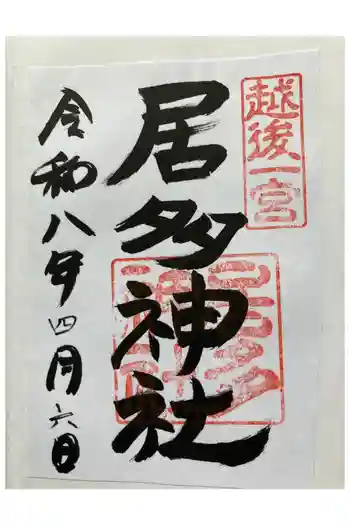 越後一宮
居多神社
令和八年四月六日